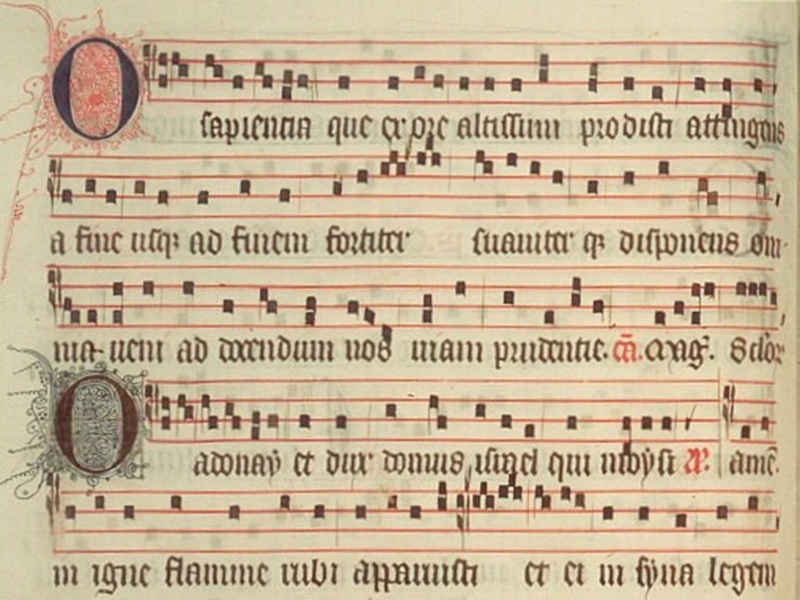 O sapientia que ex ore altissimi prodisti attingens
a fine usqꝫ ad finem fortiter suauiter qꝫ disponens om
nia ueni ad docendum nos uiam prudentie. cā. Mag̃. Sclõr
O adonay et dux domus israel qui moysi ꝶ. amē.
in igne flamme rubi apparuisti et ei in syna legem